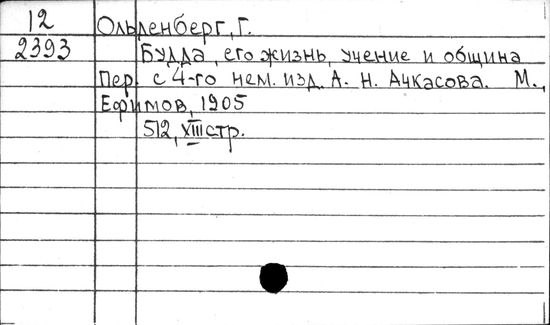 12 Ольденберг, Г.
2393 Будда, его жизнь, учение и община
Пер. с 4-го нем. изд. А. Н. Ачкасова. М.,
Ефимов, 1905
512, XIII стр.